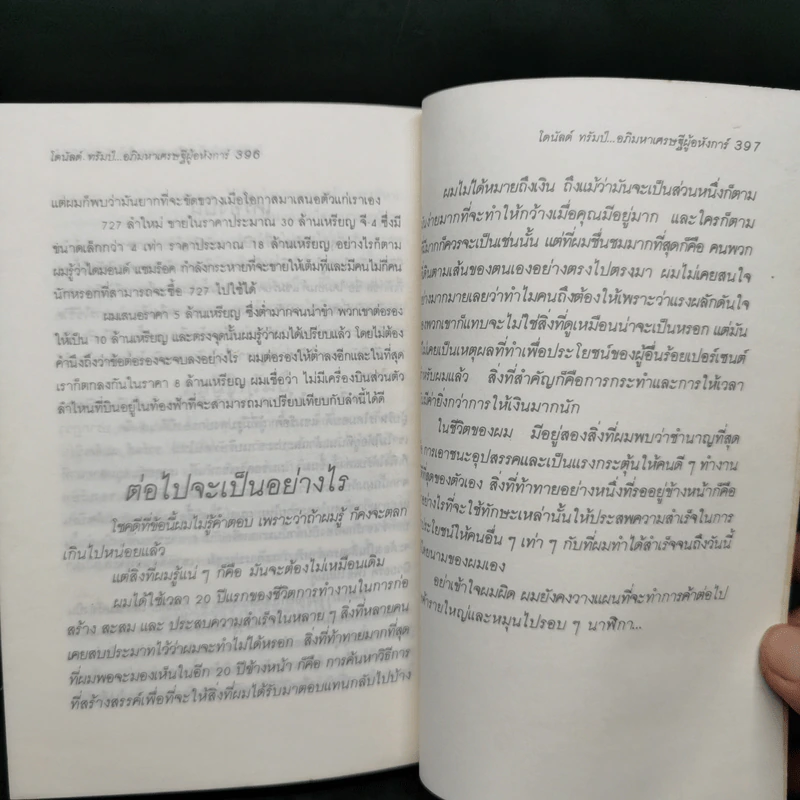 โดนัลด์ ทรัมป์...อภิมหาเศรษฐีผู้อหังการ์ 396
แต่ผมก็พบว่ามันยากที่จะขัดขวางเมื่อโอกาสมาเสนอตัวแก่เราเอง
727 ลำใหม่ ขายในราคาประมาณ 30 ล้านเหรียญ จี-4 ซึ่งมี
ขนาดเล็กกว่า 4 เท่า ราคาประมาณ 18 ล้านเหรียญ อย่างไรก็ตาม
ผมรู้ว่าไดมอนด์ แชมร็อค กำลังกระหายที่จะขายให้เต็มที่และมีคนไม่กี่คน
นักหรอกที่สามารถจะซื้อ 727 ไปใช้ได้
ผมเสนอราคา 5 ล้านเหรียญ ซึ่งต่ำมากจนน่าขำ พวกเขาต่อรอง
ให้เป็น 10 ล้านเหรียญ และตรงจุดนั้นผมรู้ว่าผมได้เปรียบแล้ว โดยไม่ต้อง
คำนึงถึงว่าข้อต่อรองจะจบลงอย่างไร ผมต่อรองให้ต่ำลงอีกและในที่สุด
เราก็ตกลงกันในราคา 8 ล้านเหรียญ ผมเชื่อว่า ไม่มีเครื่องบินส่วนตัว
ลำไหนที่บินอยู่ในท้องฟ้าที่จะสามารถมาเปรียบเทียบกับลำนี้ได้ดี
ต่อไปจะเป็นอย่างไร
โชคดีที่ข้อนี้ผมไม่รู้คำตอบ เพราะว่าถ้าผมรู้ ก็คงจะตลก
เกินไปหน่อยแล้ว
แต่สิ่งที่ผมรู้แน่ ๆ ก็คือ มันจะต้องไม่เหมือนเดิม
ผมได้ใช้เวลา 20 ปีแรกของชีวิตการทำงานในการก่อ
สร้าง สะสม และ ประสบความสำเร็จในหลาย ๆ สิ่งที่หลายคน
เคยสบประมาทไว้ว่าผมจะทำไม่ได้หรอก สิ่งที่ท้าทายมากที่สุด
ที่ผมพอจะมองเห็นในอีก 20 ปีข้างหน้า ก็คือ การค้นหาวิธีการ
ที่สร้างสรรค์เพื่อที่จะให้สิ่งที่ผมได้รับมาตอบแทนกลับไปบ้าง
โดนัลด์ ทรัมป์...อภิมหาเศรษฐีผู้อหังการ์ 397
ผมไม่ได้หมายถึงเงิน ถึงแม้ว่ามันจะเป็นส่วนหนึ่งก็ตาม
ง่ายมากที่จะทำให้กว้างเมื่อคุณมีอยู่มาก และใครก็ตาม
มีมากก็ควรจะเป็นเช่นนั้น แต่ที่ผมชื่นชมมากที่สุดก็คือ คนพวก
เดินตามเส้นของตนเองอย่างตรงไปตรงมา ผมไม่เคยสนใจ
อย่างมากมายเลยว่าทำไมคนถึงต้องให้เพราะว่าแรงผลักดันใจ
ของพวกเขาก็แทบจะไม่ใช่สิ่งที่ดูเหมือนน่าจะเป็นหรอก แต่มัน
ไม่เคยเป็นเหตุผลที่ทำเพื่อประโยชน์ของผู้อื่นร้อยเปอร์เซนต์
สำหรับผมแล้ว สิ่งที่สำคัญก็คือการกระทำและการให้เวลา
มีค่ายิ่งกว่าการให้เงินมากนัก
ในชีวิตของผม มีอยู่สองสิ่งที่ผมพบว่าชำนาญที่สุด
การเอาชนะอุปสรรคและเป็นแรงกระตุ้นให้คนดี ๆ ทำงาน
ที่สุดของตัวเอง สิ่งที่ท้าทายอย่างหนึ่งที่รออยู่ข้างหน้าก็คือ
อย่างไรที่จะใช้ทักษะเหล่านั้นให้ประสพความสำเร็จในการ
ประโยชน์ให้คนอื่น ๆ เท่า ๆ กับที่ผมทำได้สำเร็จจนถึงวันนี้
โดยนามของผมเอง
อย่าเข้าใจผมผิด ผมยังคงวางแผนที่จะทำการค้าต่อไป
ค้ารายใหญ่และหมุนไปรอบ ๆ นาฬิกา...